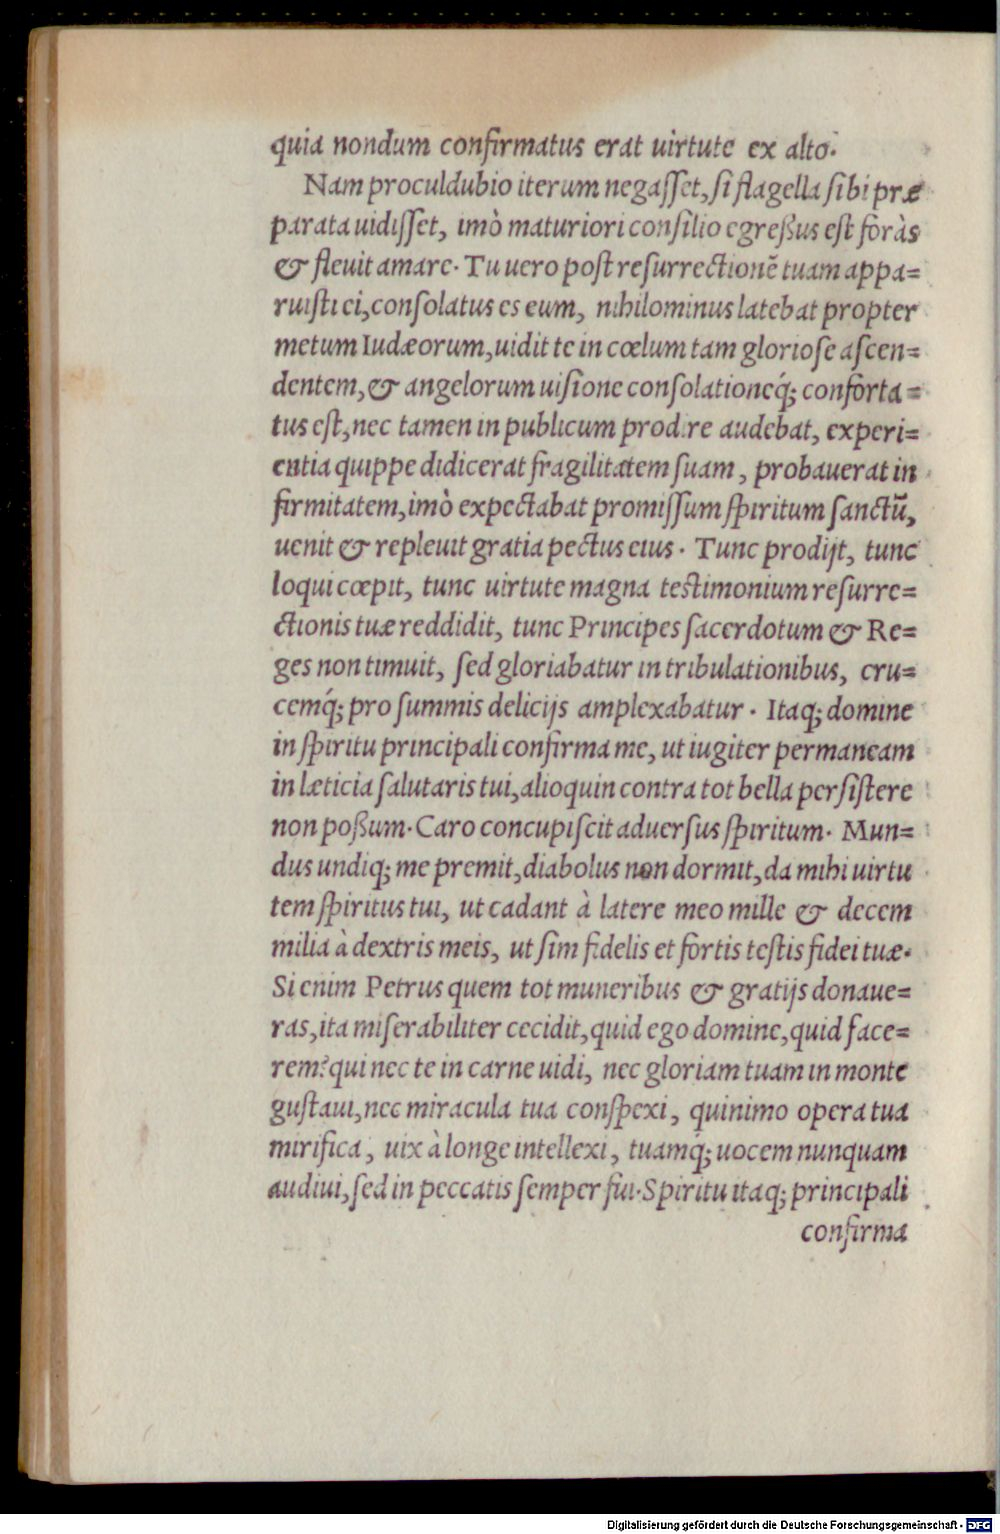 quia nondum confirmatus erat uirtute ex alto.
Nam proculdubio iterum negaſſet, ſi flagella ſibi præ
parata uidiſſet, imò maturiori conſilio egreßus eſt foràs
& fleuit amare. Tu uero poſt reſurrectionē tuam appa=
ruiſti ei, conſolatus es eum, nihilominus latebat propter
metum Iudæorum, uidit te in cœlum tam glorioſe aſcen=
dentem, & angelorum uiſione conſolationeq́; conforta=
tus eſt, nec tamen in publicum prodire audebat, experi=
entia quippe didicerat fragilitatem ſuam, probauerat in
firmitatem, imò expectabat promiſſum ſpiritum ſanctū,
uenit & repleuit gratia pectus eius. Tunc prodijt, tunc
loqui cœpit, tunc uirtute magna teſtimonium reſurre=
ctionis tuæ reddidit, tunc Principes ſacerdotum & Re=
ges non timuit, ſed gloriabatur in tribulationibus, cru=
cemq́; pro ſummis delicijs amplexabatur. Itaq; domine
in ſpiritu principali confirma me, ut iugiter permaneam
in læticia ſalutaris tui, alioquin contra tot bella perſiſtere
non poßum. Caro concupiſcit aduerſus ſpiritum. Mun=
dus undiq; me premit, diabolus non dormit, da mihi uirtu
tem ſpiritus tui, ut cadant à latere meo mille & decem
milia à dextris meis, ut ſim fidelis et fortis teſtis fidei tuæ.
Si enim Petrus quem tot muneribus & gratijs donaue=
ras, ita miſerabiliter cecidit, quid ego domine, quid face=
rem? qui nec te in carne uidi, nec gloriam tuam in monte
guſtaui, nec miracula tua conſpexi, quinimo opera tua
mirifica, uix à longe intellexi, tuamq́; uocem nunquam
audiui, ſed in peccatis ſemper fui. Spiritu itaq; principali
confirma
Digitalisierung gefördert durch die Deutsche Forschungsgemeinschaft - DFG